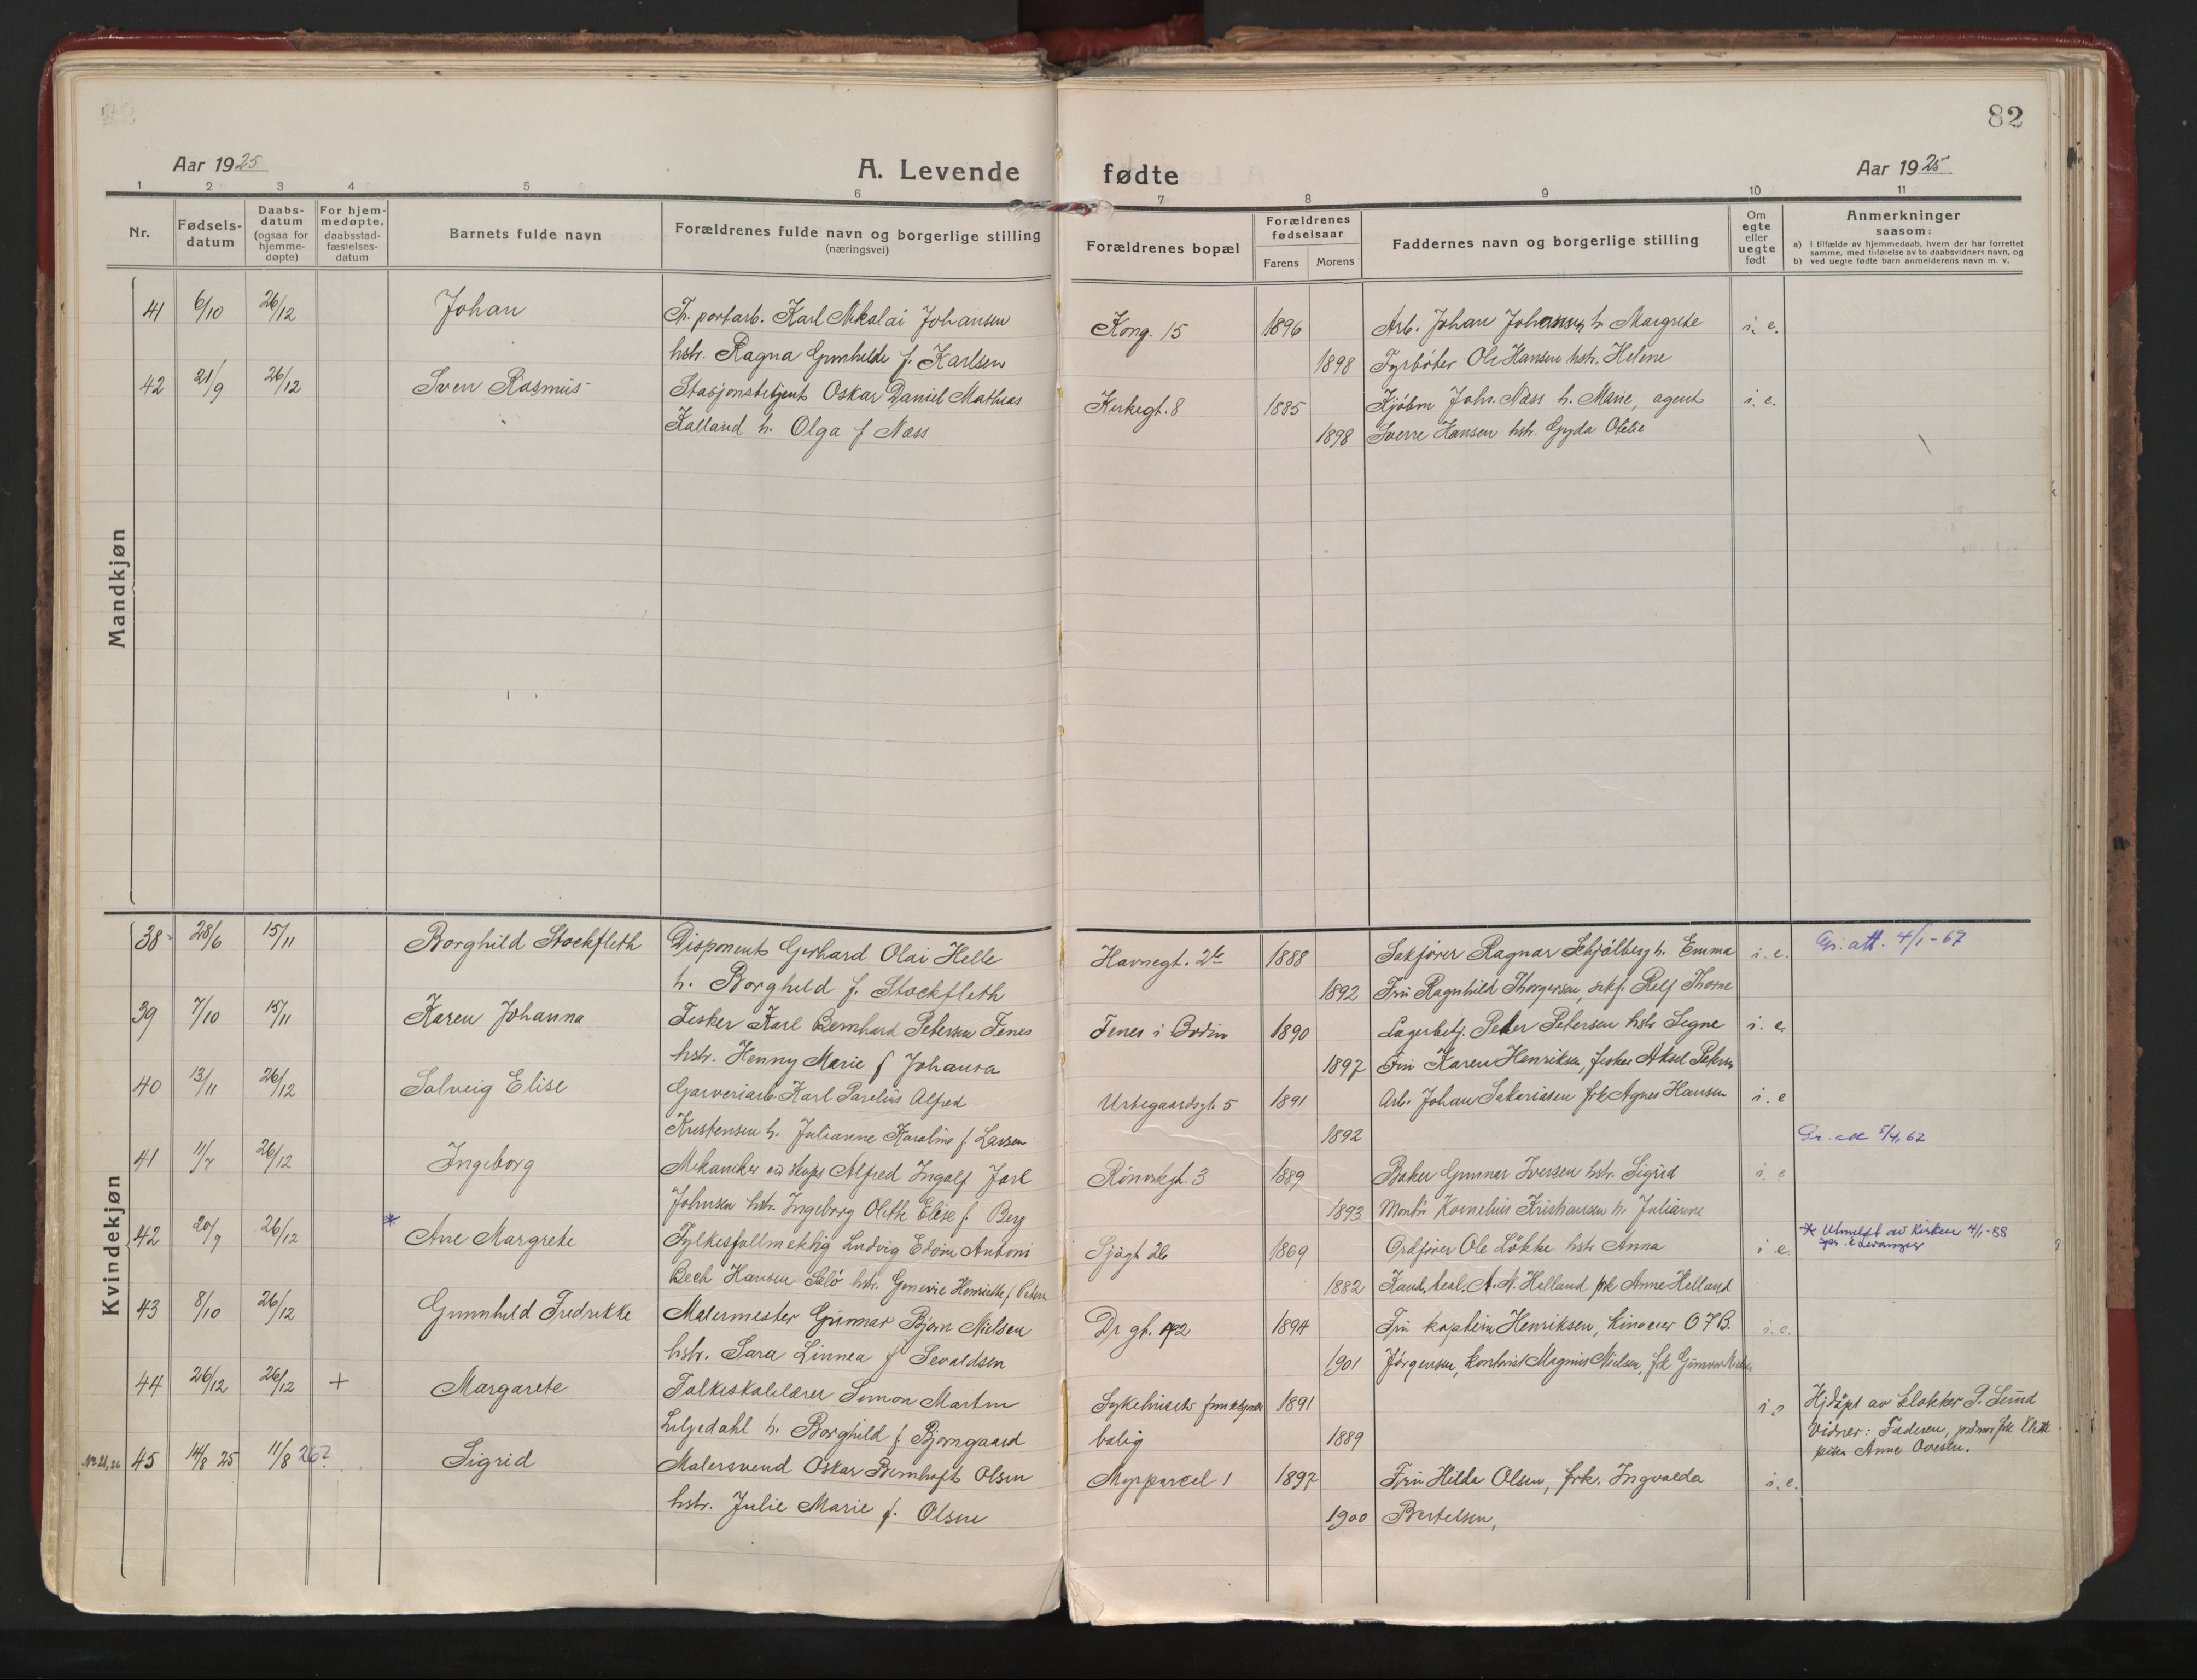 82
Aar 1925
A. Levende fødte
Aar 1925
1 2 3 4 5 6 7 8 9 10 11
Nr.
Fødsels-
datum
Daabs-
datum
(ogsaa for
hjemme-
døpte)
For hjem-
medøpte,
daabsstad-
fæstelses-
datum
Barnets fulde navn
Forældrenes fulde navn og borgerlige stilling
(næringsvei)
Forældrenes bopæl
Forældrenes
fødselsaar
Farens Morens
Faddernes navn og borgerlige stilling
Om
egte
eller
uegte
født
Anmerkninger
saasom:
a) i tilfælde av hjemmedaab, hvem der har forrettet
samme, med tilføielse av to daabsvidners navn, og
b) ved uegte fødte barn anmelderens navn m. v.
Mandkjøn
41 6/10 26/12 Johan Tr. portarb. Karl Nikolai Johansen Kong. 15 1896 Arb. Johan Johansen h. Margrete i. e.
hstr. Ragna Gunhilde f. Karlsen 1898 Fyrbøter Ole Hansen hstr. Helene
42 21/9 26/12 Sven Rasmus Stasjonsbetjent Oskar Daniel Mathias Kirkegt. 8 1885 Kjøbm Johs. Næss h. Marie, agent i. e.
Kalland h. Olga f Næss 1898 Sverre Hansen hstr. Gyda Otelie
Kvindekjøn
38 28/6 15/11 Borghild Stockfleth Disponent Gerhard Olai Helle Havnegt. 1888 Sakfører Ragnar Schjølberg h. Emma i. e. Gr. att. 4/1-67
h. Borghild f. Stockfleth 1892 Fru Ragnhild Thorgersen, sekf. Rolf Thorne
39 7/10 15/11 Karen Johanna Fisker Karl Bernhard Petersen Fenes Fenes i Bodin 1890 Lagerbetj. Peter Petersen hstr Signe i. e.
hstr. Henny Marie f Johansa 1897 Fru Karen Henriksen, fisker Aksel Petersen
40 13/11 26/12 Solveig Elise Garveriarb. Karl Parelius Alfred Urtegaardsgt. 5 1891 Arb. Johan Sakariasen frk Agnes Hansen i. e
Kristensen h. Julianne Karoline f Larsen 1892 Gr. att 5/4, 62
41 11/7 26/12 Ingeborg Mekaniker Alfred Ingolf Jarl Rönvikgt. 3 1889 Baker Gunnar Iversen hstr. Sigrid i. e
Johnsen hstr. Ingeborg Olette Elise f. Berg 1893 Montör Kornelius Kristiansen h. Julianne
42 20/9 26/12 * Ane Margrete Fylkesfullmektig Ludvig Edvin Antoni Sjøgt 26 1869 Ordfører Ole Løkke hstr Anna i e. * Utmeldt av Kirken 4/1-88
Bech Hansen hstr. Henriette f 1882 Kand. teol. A. N. Helland frk Anne Helland
43 8/10 26/12 Gunnhild Fredrikke Malermester Gunnar Bjørn Nielsen Dr gt. 1894 Fru kaptein Henriksen, O F B. i. e.
hstr. Sara Linnea f Sevaldsen 1901 Jørgensen, kontorist Magnus Nielsen, frk Gunvor
44 26/12 26/12 + Margarete Folkeskolelærer Simon Martin Sykehusets 1891 i e Hjdøpt av klokker P. Lund
Liljedahl h. Borghild f Bjørngaard bolig 1889 Vidner: Faderen,
Anne Ovesen.
45 14/8 25 11/8 26? Sigrid Malersvend Oskar Bernhoft Olsen Myrparcel 1 1897 Fru Hilda Olsen, frk. Ingvalda i. e.
hstr. Julie Marie f. Olsen 1900 Bertelsen,